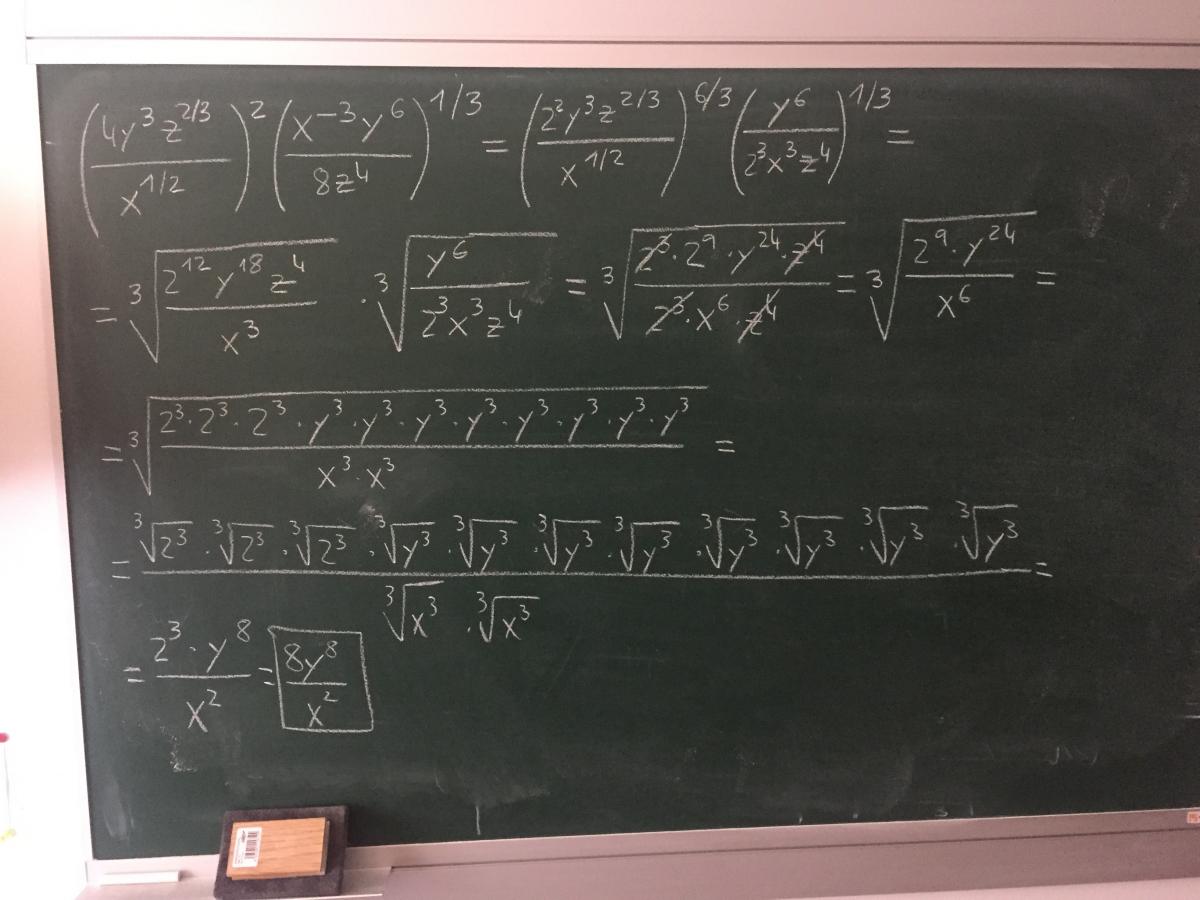 (4y³z^{2/3} / x^{1/2})² (x⁻³y⁶ / 8z⁴)^{1/3} = (2²y³z^{2/3} / x^{1/2})^{6/3} (y⁶ / 2³x³z⁴)^{1/3} =
= ∛(2¹²y¹⁸z⁴ / x³) · ∛(y⁶ / 2³x³z⁴) = ∛(2³·2⁹·y²⁴·z⁴ / 2³·x⁶·z⁴) = ∛(2⁹·y²⁴ / x⁶) =
= ∛(2³·2³·2³·y³·y³·y³·y³·y³·y³·y³·y³ / x³·x³) =
= ∛2³·∛2³·∛2³·∛y³·∛y³·∛y³·∛y³·∛y³·∛y³·∛y³·∛y³ / ∛x³·∛x³ =
= 2³·y⁸ / x² = 8y⁸ / x²